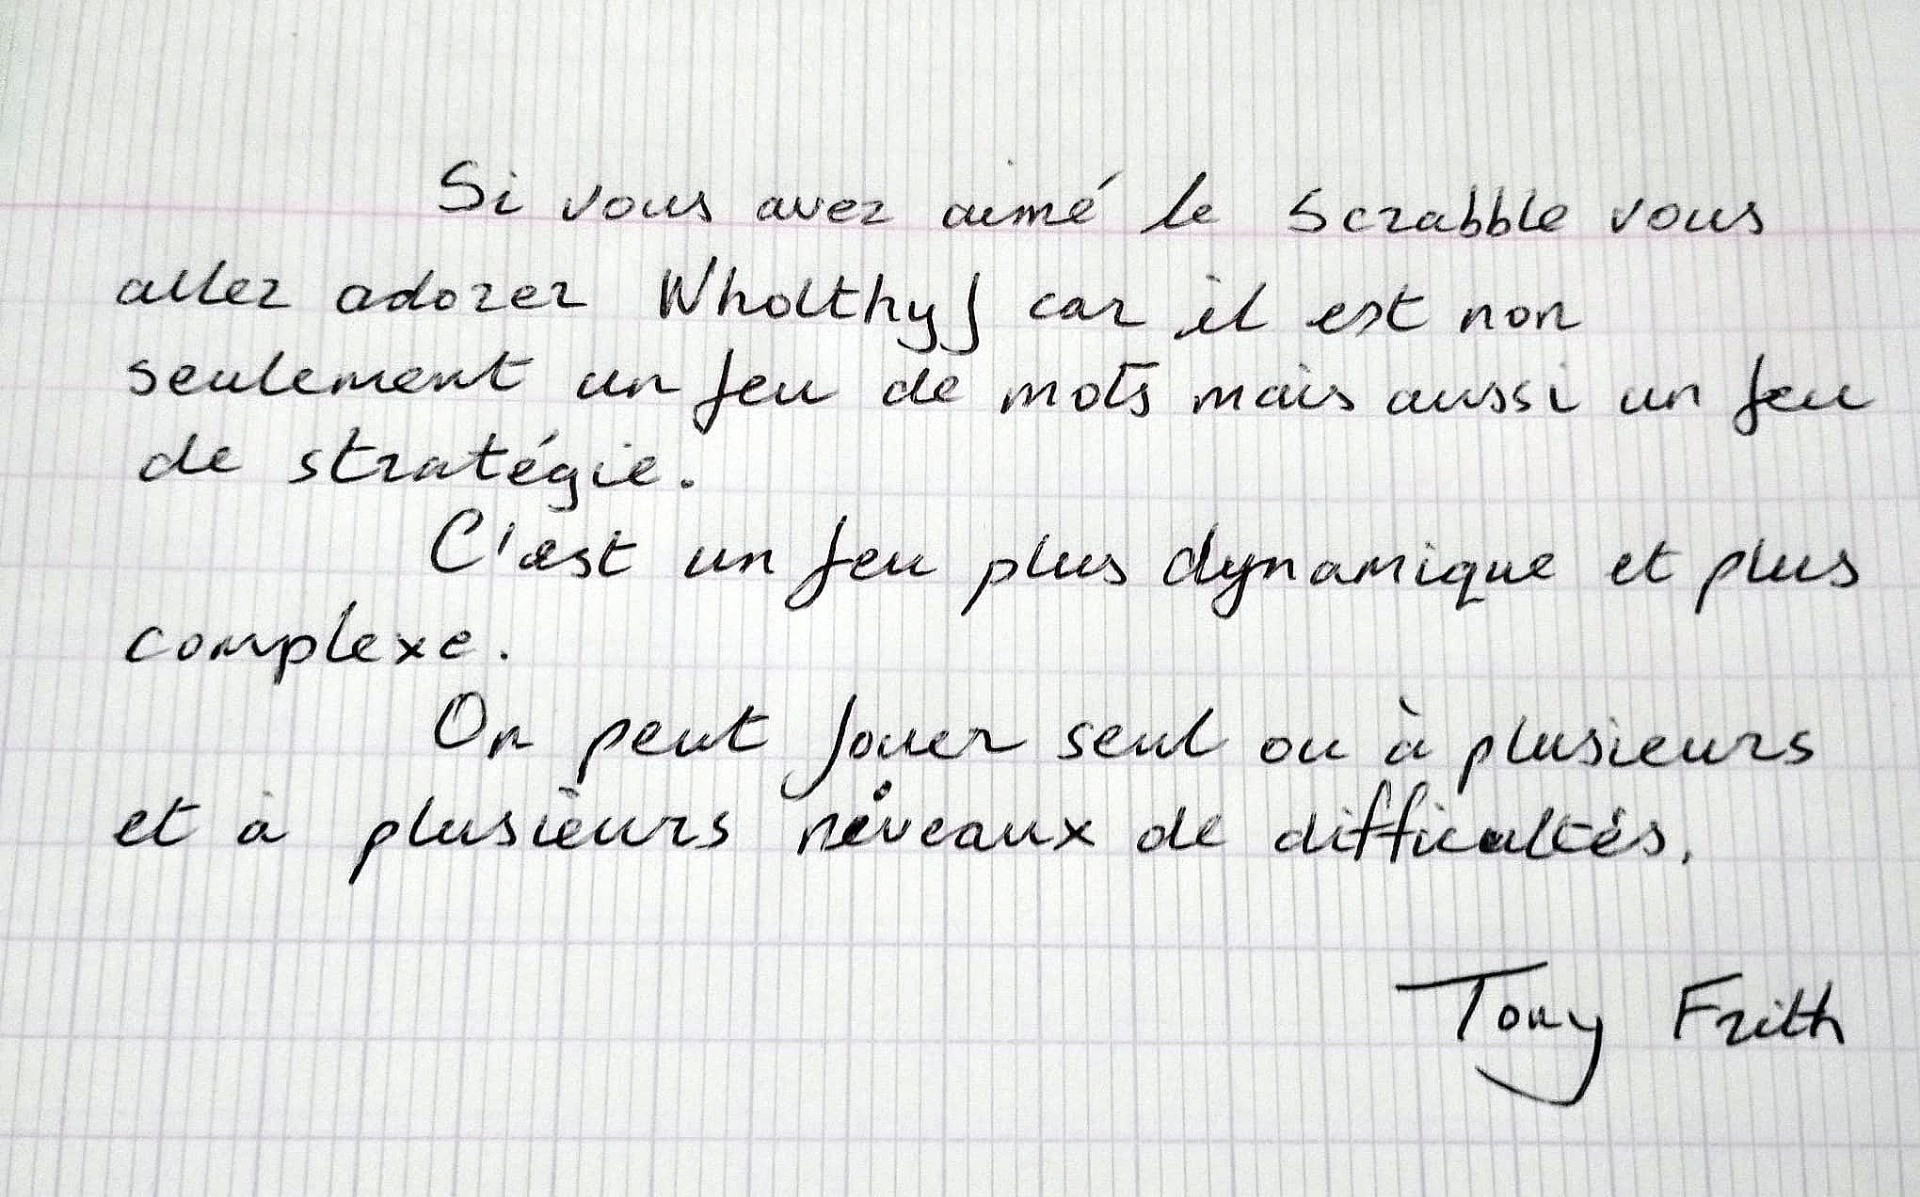 Si vous avez aimé le Scrabble vous
allez adorer Wholthyj car il est non
seulement un jeu de mots mais aussi un jeu
de stratégie.
C'est un jeu plus dynamique et plus
complexe.
On peut jouer seul ou à plusieurs
et à plusieurs niveaux de difficultés.
Tony Frith